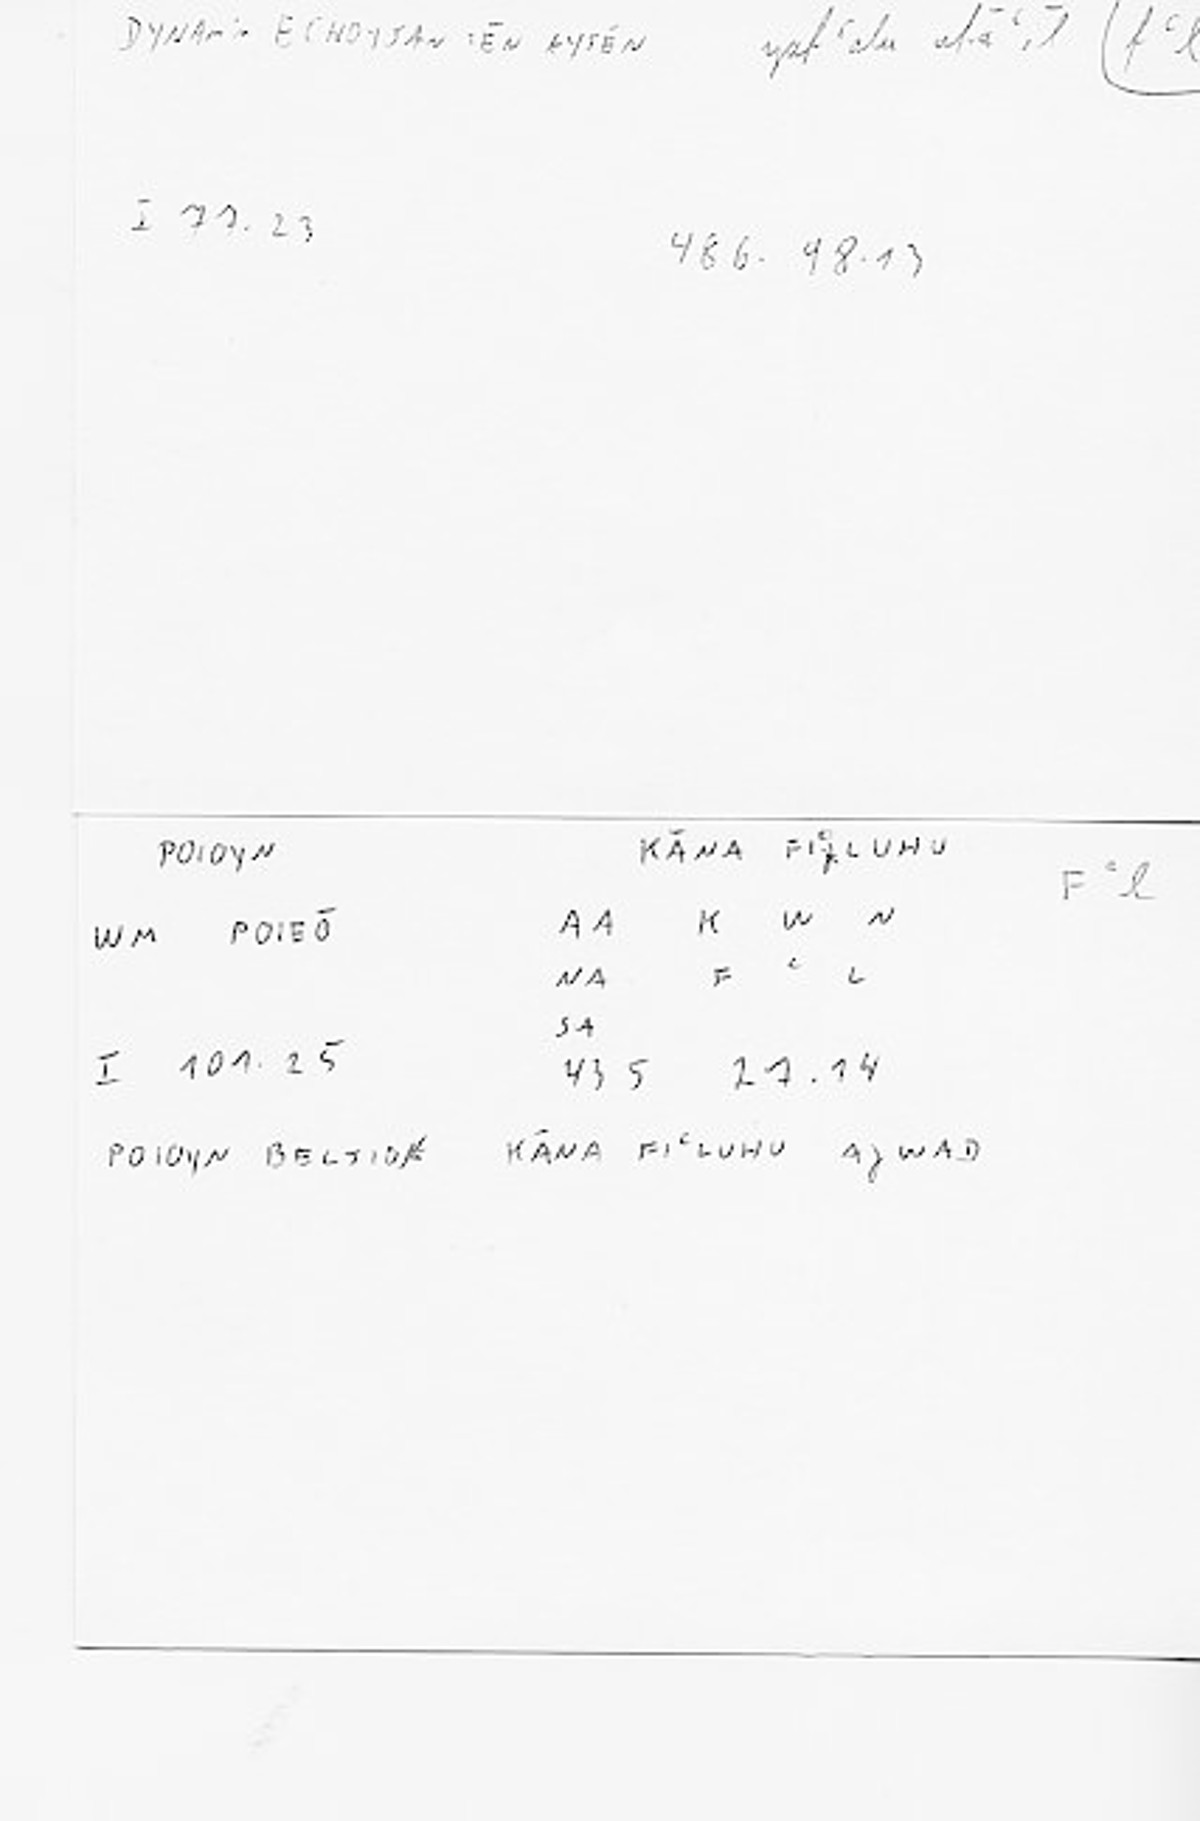 DYNAMIN ECHOYSAN TĒN AYTĒN yafʿalu (fʿl
I 71.23 486. 98.13
POIOYN KĀNA FIʿLUHU Fʿl
WM POIEŌ AA K W N
NA F ʿ L
SA
I 101.25 435 27.14
POIOYN BELTION KĀNA FIʿLUHU AJWAD